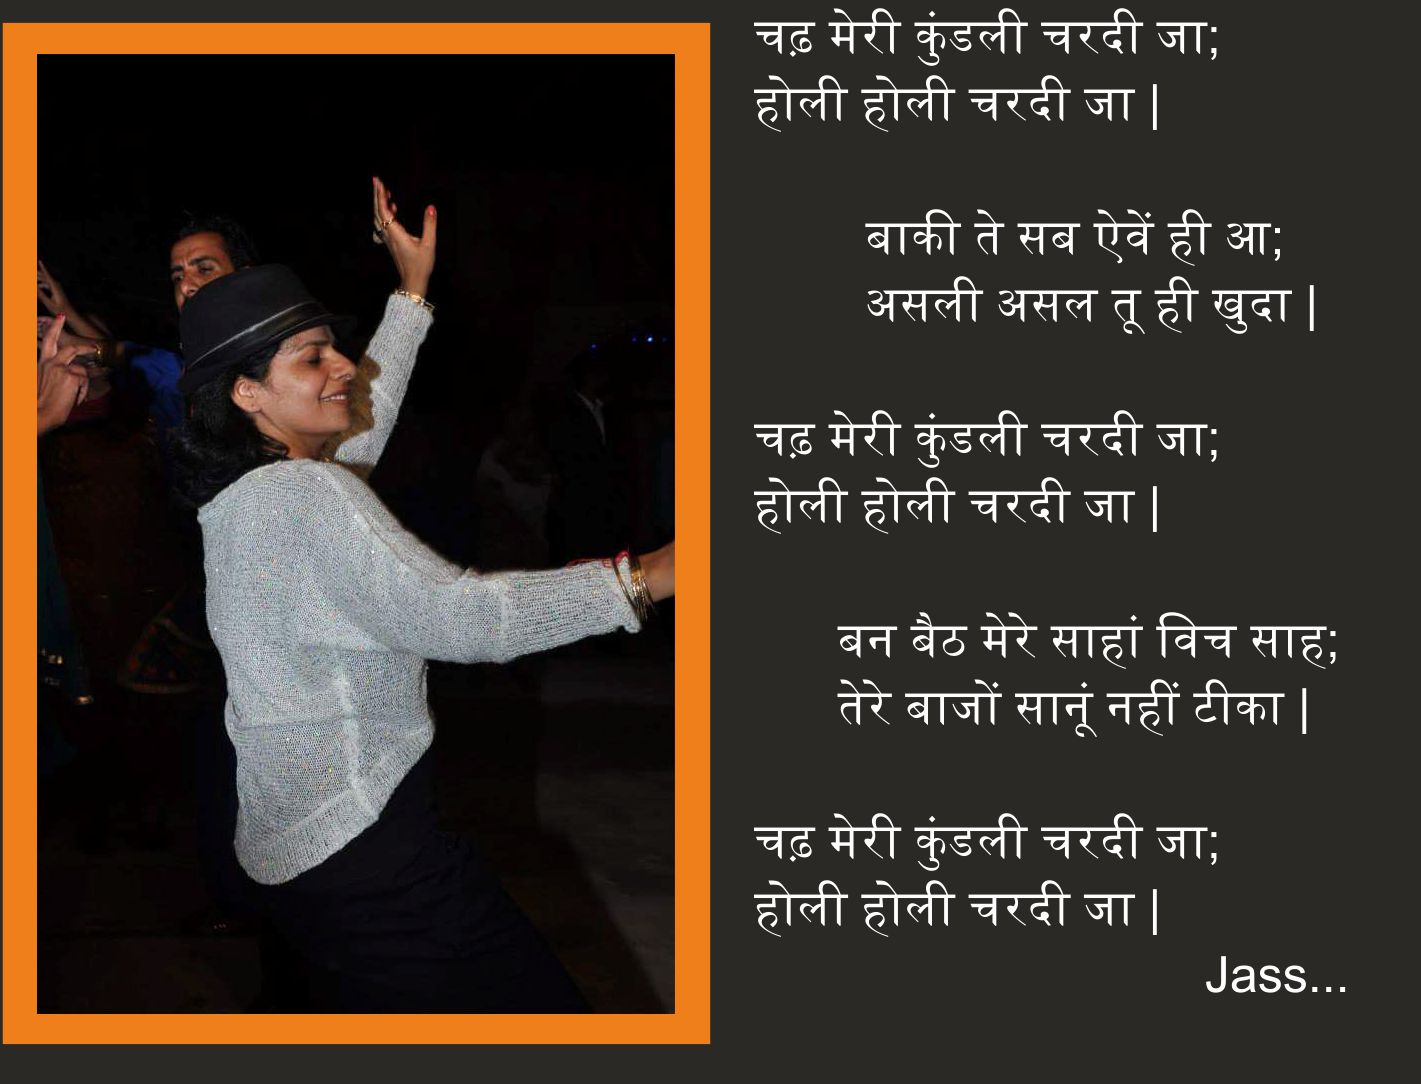 चढ़ मेरी कुंडली चरदी जा;
होली होली चरदी जा |
बाकी ते सब ऐवें ही आ;
असली असल तू ही खुदा |
चढ़ मेरी कुंडली चरदी जा;
होली होली चरदी जा |
बन बैठ मेरे साहां विच साह;
तेरे बाजों सानूं नहीं टीका |
चढ़ मेरी कुंडली चरदी जा;
होली होली चरदी जा |
Jass...